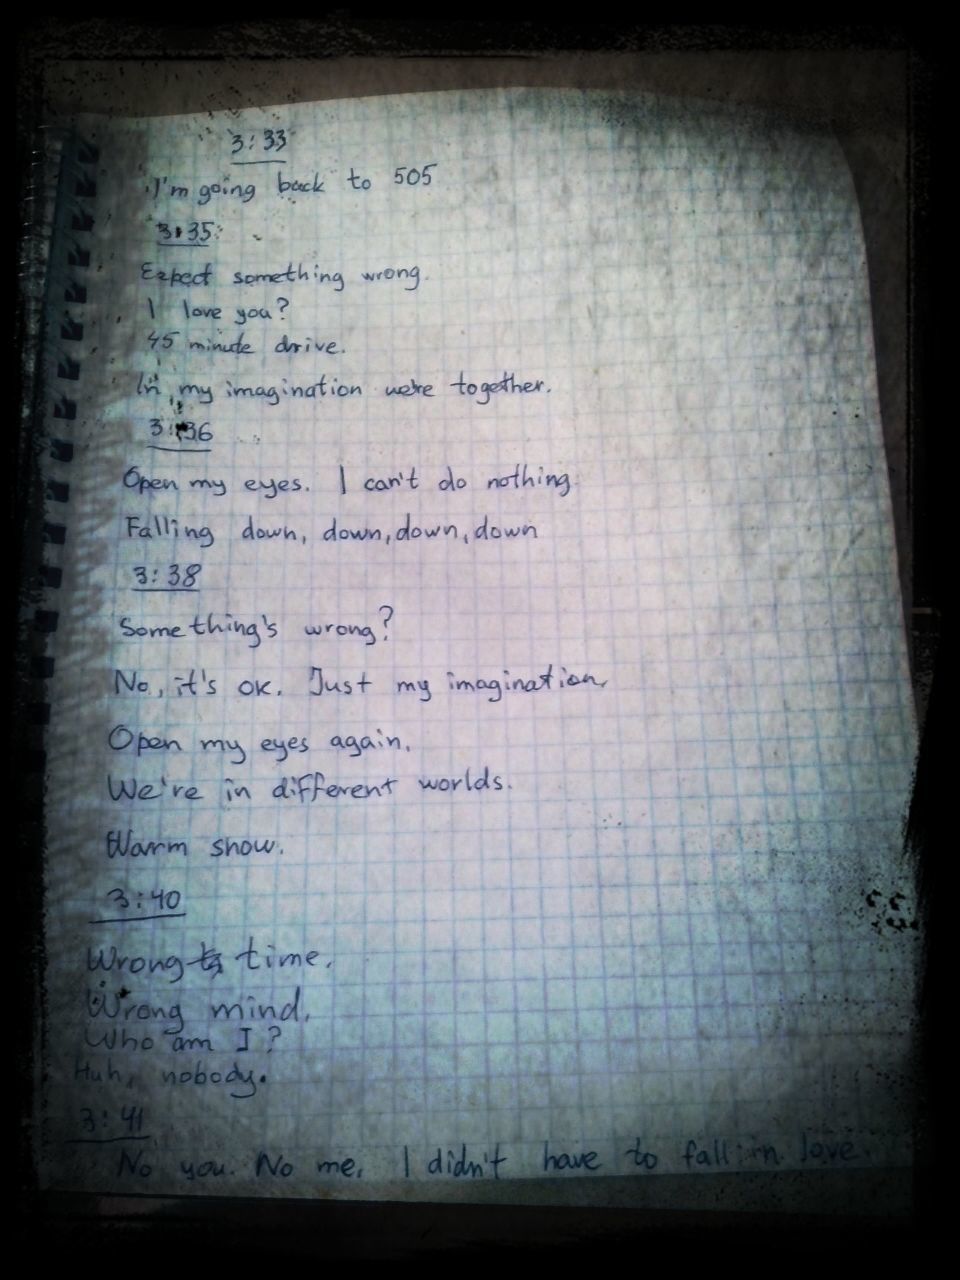 3:33
I'm going back to 505
3:35
Expect something wrong.
I love you?
45 minute drive.
In my imagination we're together.
3:36
Open my eyes. I can't do nothing.
Falling down, down, down, down
3:38
Something's wrong?
No, it's ok. Just my imagination.
Open my eyes again.
We're in different worlds.
Warm snow.
3:40
Wrong time.
Wrong mind.
Who am I?
Huh, nobody.
3:41
No you. No me. I didn't have to fall in love.